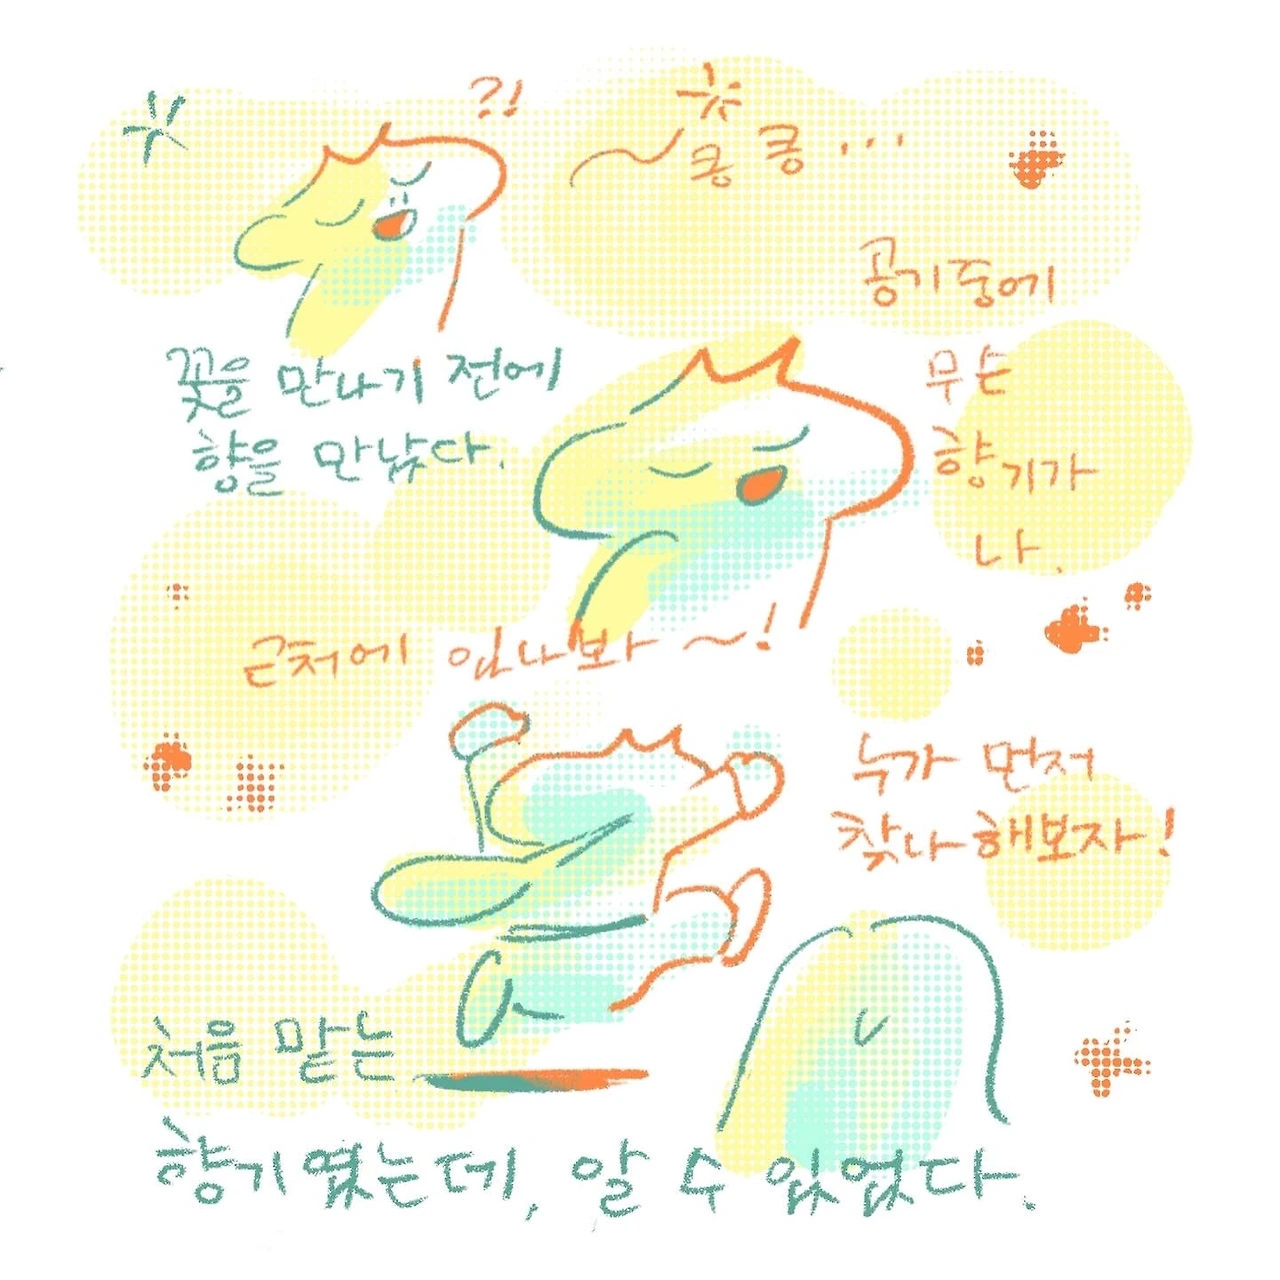 ?!
킁 킁 ...
꽃을 만나기 전에
향을 만났다.
공기중에
무슨
향기가
나.
근처에 있나봐 ~!
누가 먼저
찾나 해보자!
처음 맡는
향기였는데, 알 수 있었다.